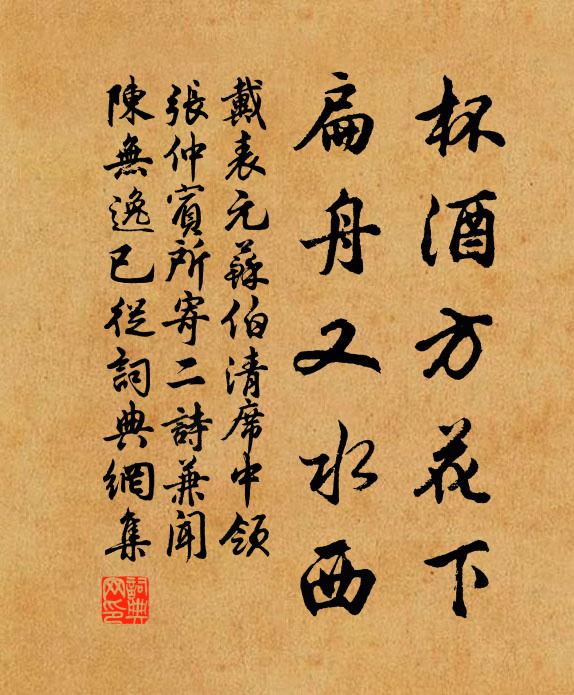 杯酒方花下
扁舟又水西
戴表元蘇伯清席中領
張仲賓所寄二詩兼聞
陳無逸已從詞典網集
詞典
网印